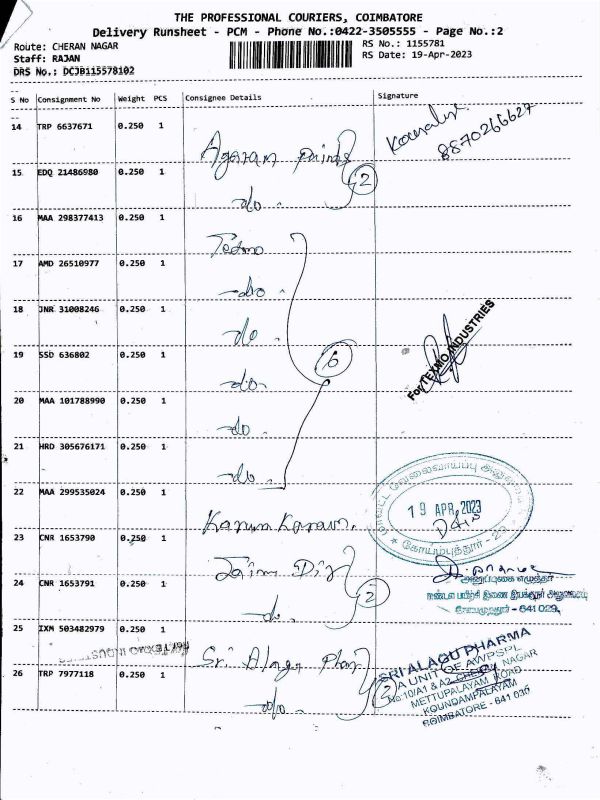 THE PROFESSIONAL COURIERS, COIMBATORE
Delivery Runsheet - PCM - Phone No.:0422-3505555 - Page No.:2
Route: CHERAN NAGAR
RS No.: 1155781
Staff: RAJAN
RS Date: 19-Apr-2023
DRS No.: DCJB115578102
S No Consignment No Weight PCS Consignee Details Signature
14 TRP 6637671 0.250 1
8870266627
Agaram
15 EDQ 21486980 0.250 1
2
do.
16 MAA 298377413 0.250 1
17 AMD 26510977 0.250 1
do.
18 JNR 31008246 0.250 1
do.
For TEXMO INDUSTRIES
19 SSD 636802 0.250 1
6
do.
20 MAA 101788990 0.250 1
do.
21 HRD 305676171 0.250 1
do.
22 MAA 299535024 0.250 1
19 APR 2023
23 CNR 1653790 0.250 1
கோயம்புத்தூர் - 29
24 CNR 1653791 0.250 1
2
do.
கோயமுத்தூர் - 641 029.
25 IXM 503482979 0.250 1
Sri Alagu Phar
SRI ALAGU PHARMA
A UNIT OF AWPSPL
26 TRP 7977118 0.250 1
2
No:10/A1 & A2 CHERAN NAGAR
METTUPALAYAM ROAD
do.
KOUNDAMPALAYAM
COIMBATORE - 641 030